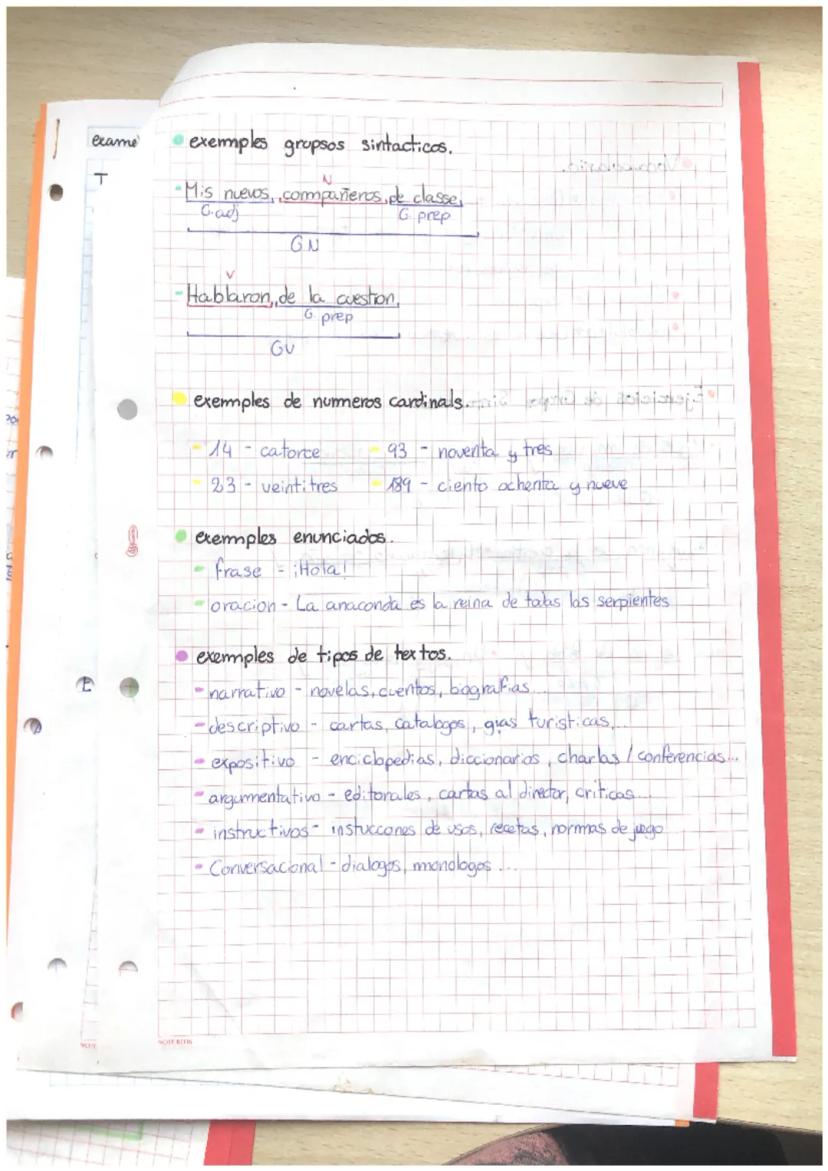 exame
T
exemples grupsos sintacticos.
N
- Mis nuevos, compañeros, de classe,
G.adj G. prep
GN
V
- Hablaron, de la cuestion,
G. prep
GV
exemples de nummeros cardinals.
- 14 - catorce - 93 - noventa y tres
- 23 - veintitres - 189 - ciento ochenta y nueve
exemples enunciados.
- frase - ¡Hola!
- oracion - La anaconda es la reina de todas las serpientes
exemples de tipos de textos.
- narrativo - novelas, cuentos, biografias...
- descriptivo - cartas, catalogos, guias turisticas,...
- expositivo - enciclopedias, diccionarios, charlas / conferencias...
- argumentativo - editorales, cartas al director, criticas...
- instructivos - instuccones de usos, recetas, normas de juego
- Conversacional - dialogos, monologos ...